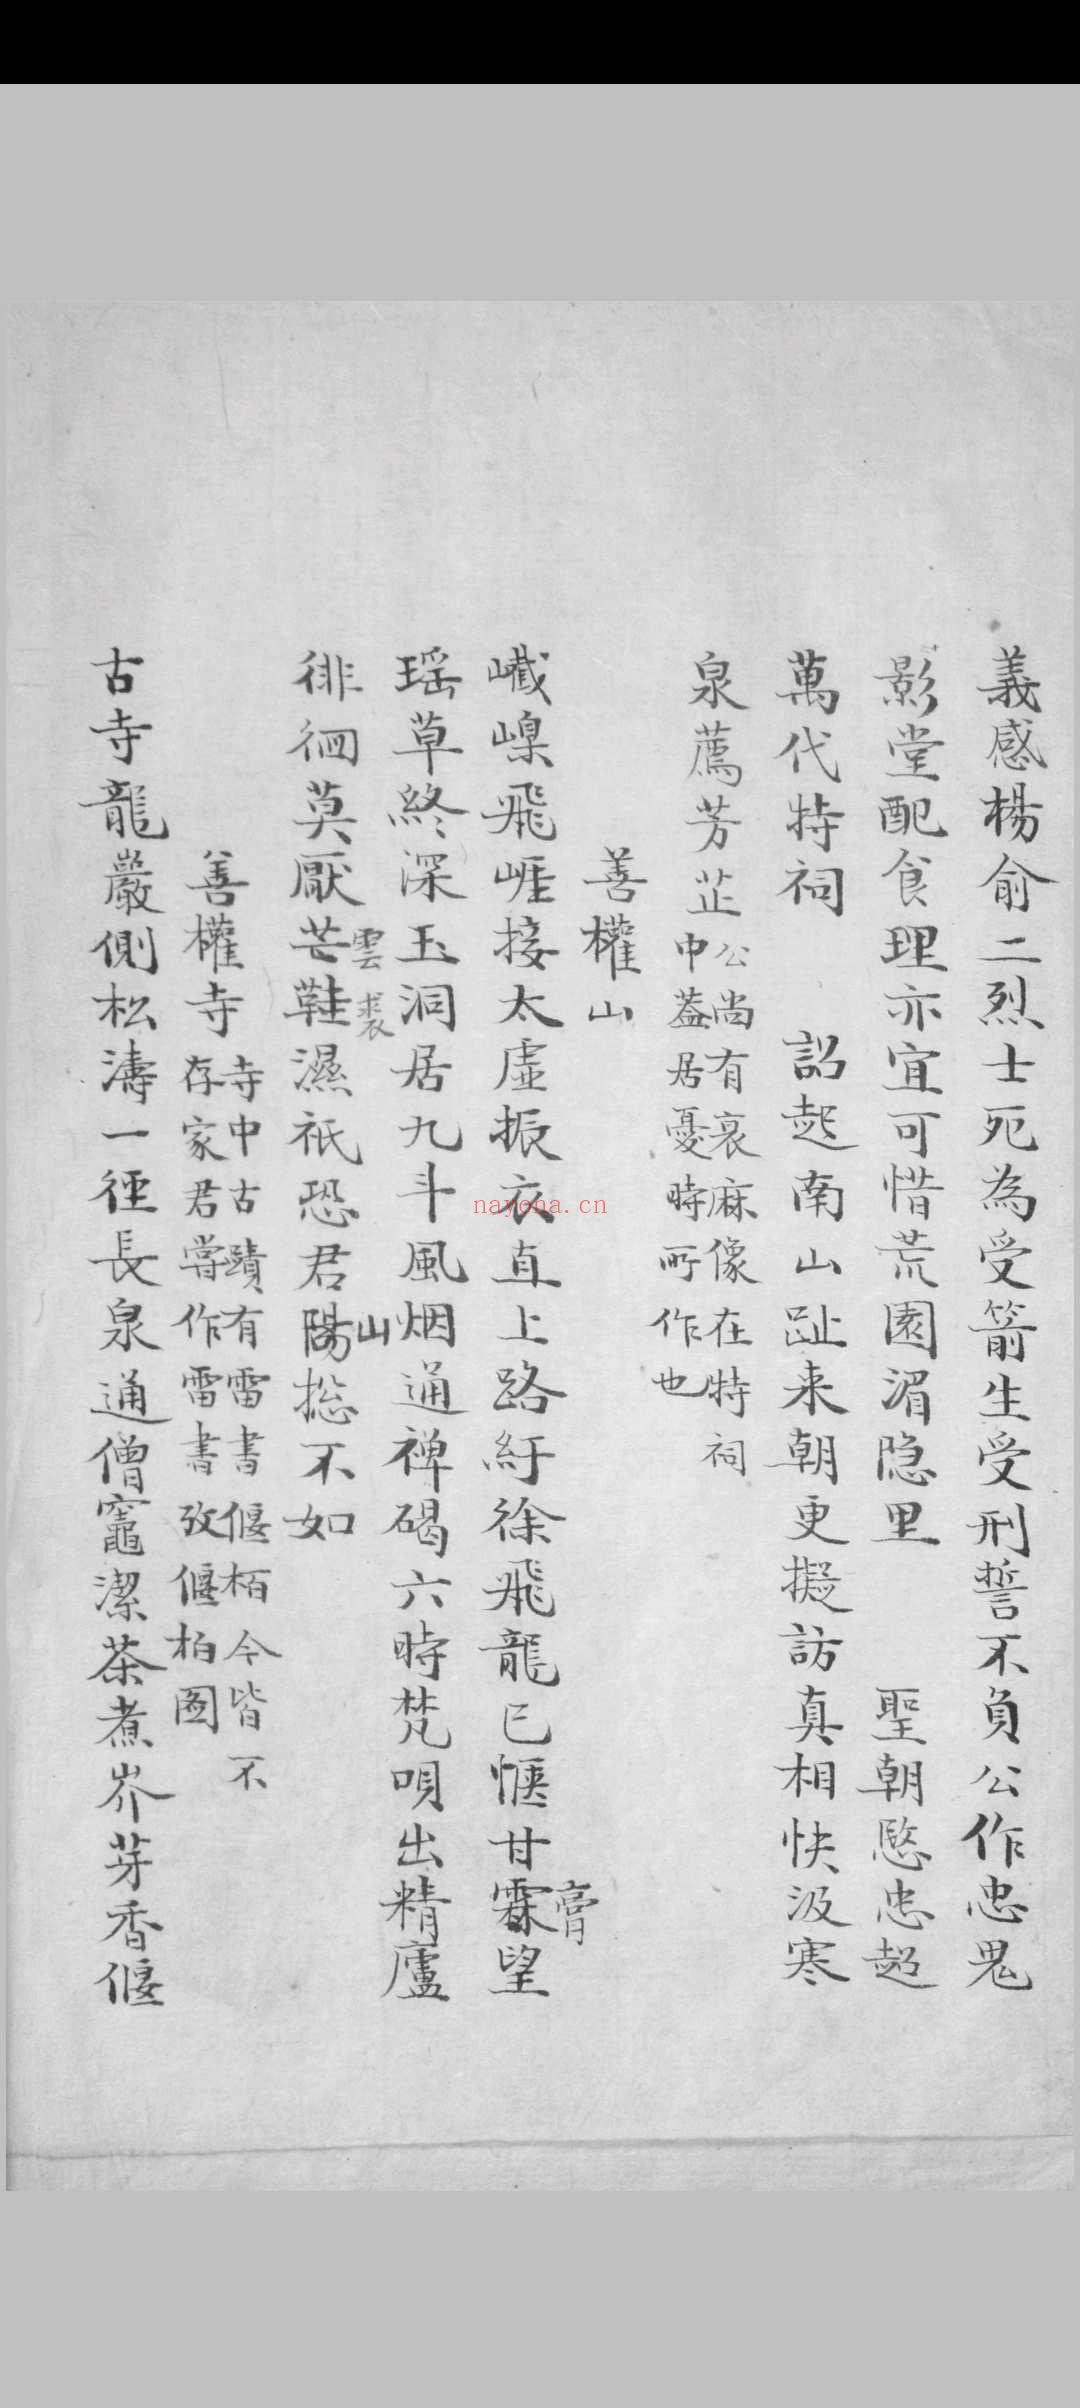 義感楊俞二烈士死為受箭生受刑誓不負公作忠鬼
影堂配食理亦宜可惜荒園湄隐里 聖朝愍忠起
萬代特祠 詔起南山趾来朝更擬訪真相快汲寒
泉薦芳芷公尚有衰麻像在特祠
中葢居憂時所作也
善權山
巇嵲飛崕接太虛振衣直上路紆徐飛龍已愜甘霖望
膏
瑶草終深玉洞居九斗風烟通禅碣六時梵唄出精廬
徘徊莫厭芒鞋濕祇恐君陽揔不如
雲裘
山
善權寺寺中古蹟有雷書偃栢今皆不
存家君嘗作雷書攷偃柏图
古寺龍巖側松濤一徑長泉通僧竈潔茶煮岕芽香偃
nayona.cn